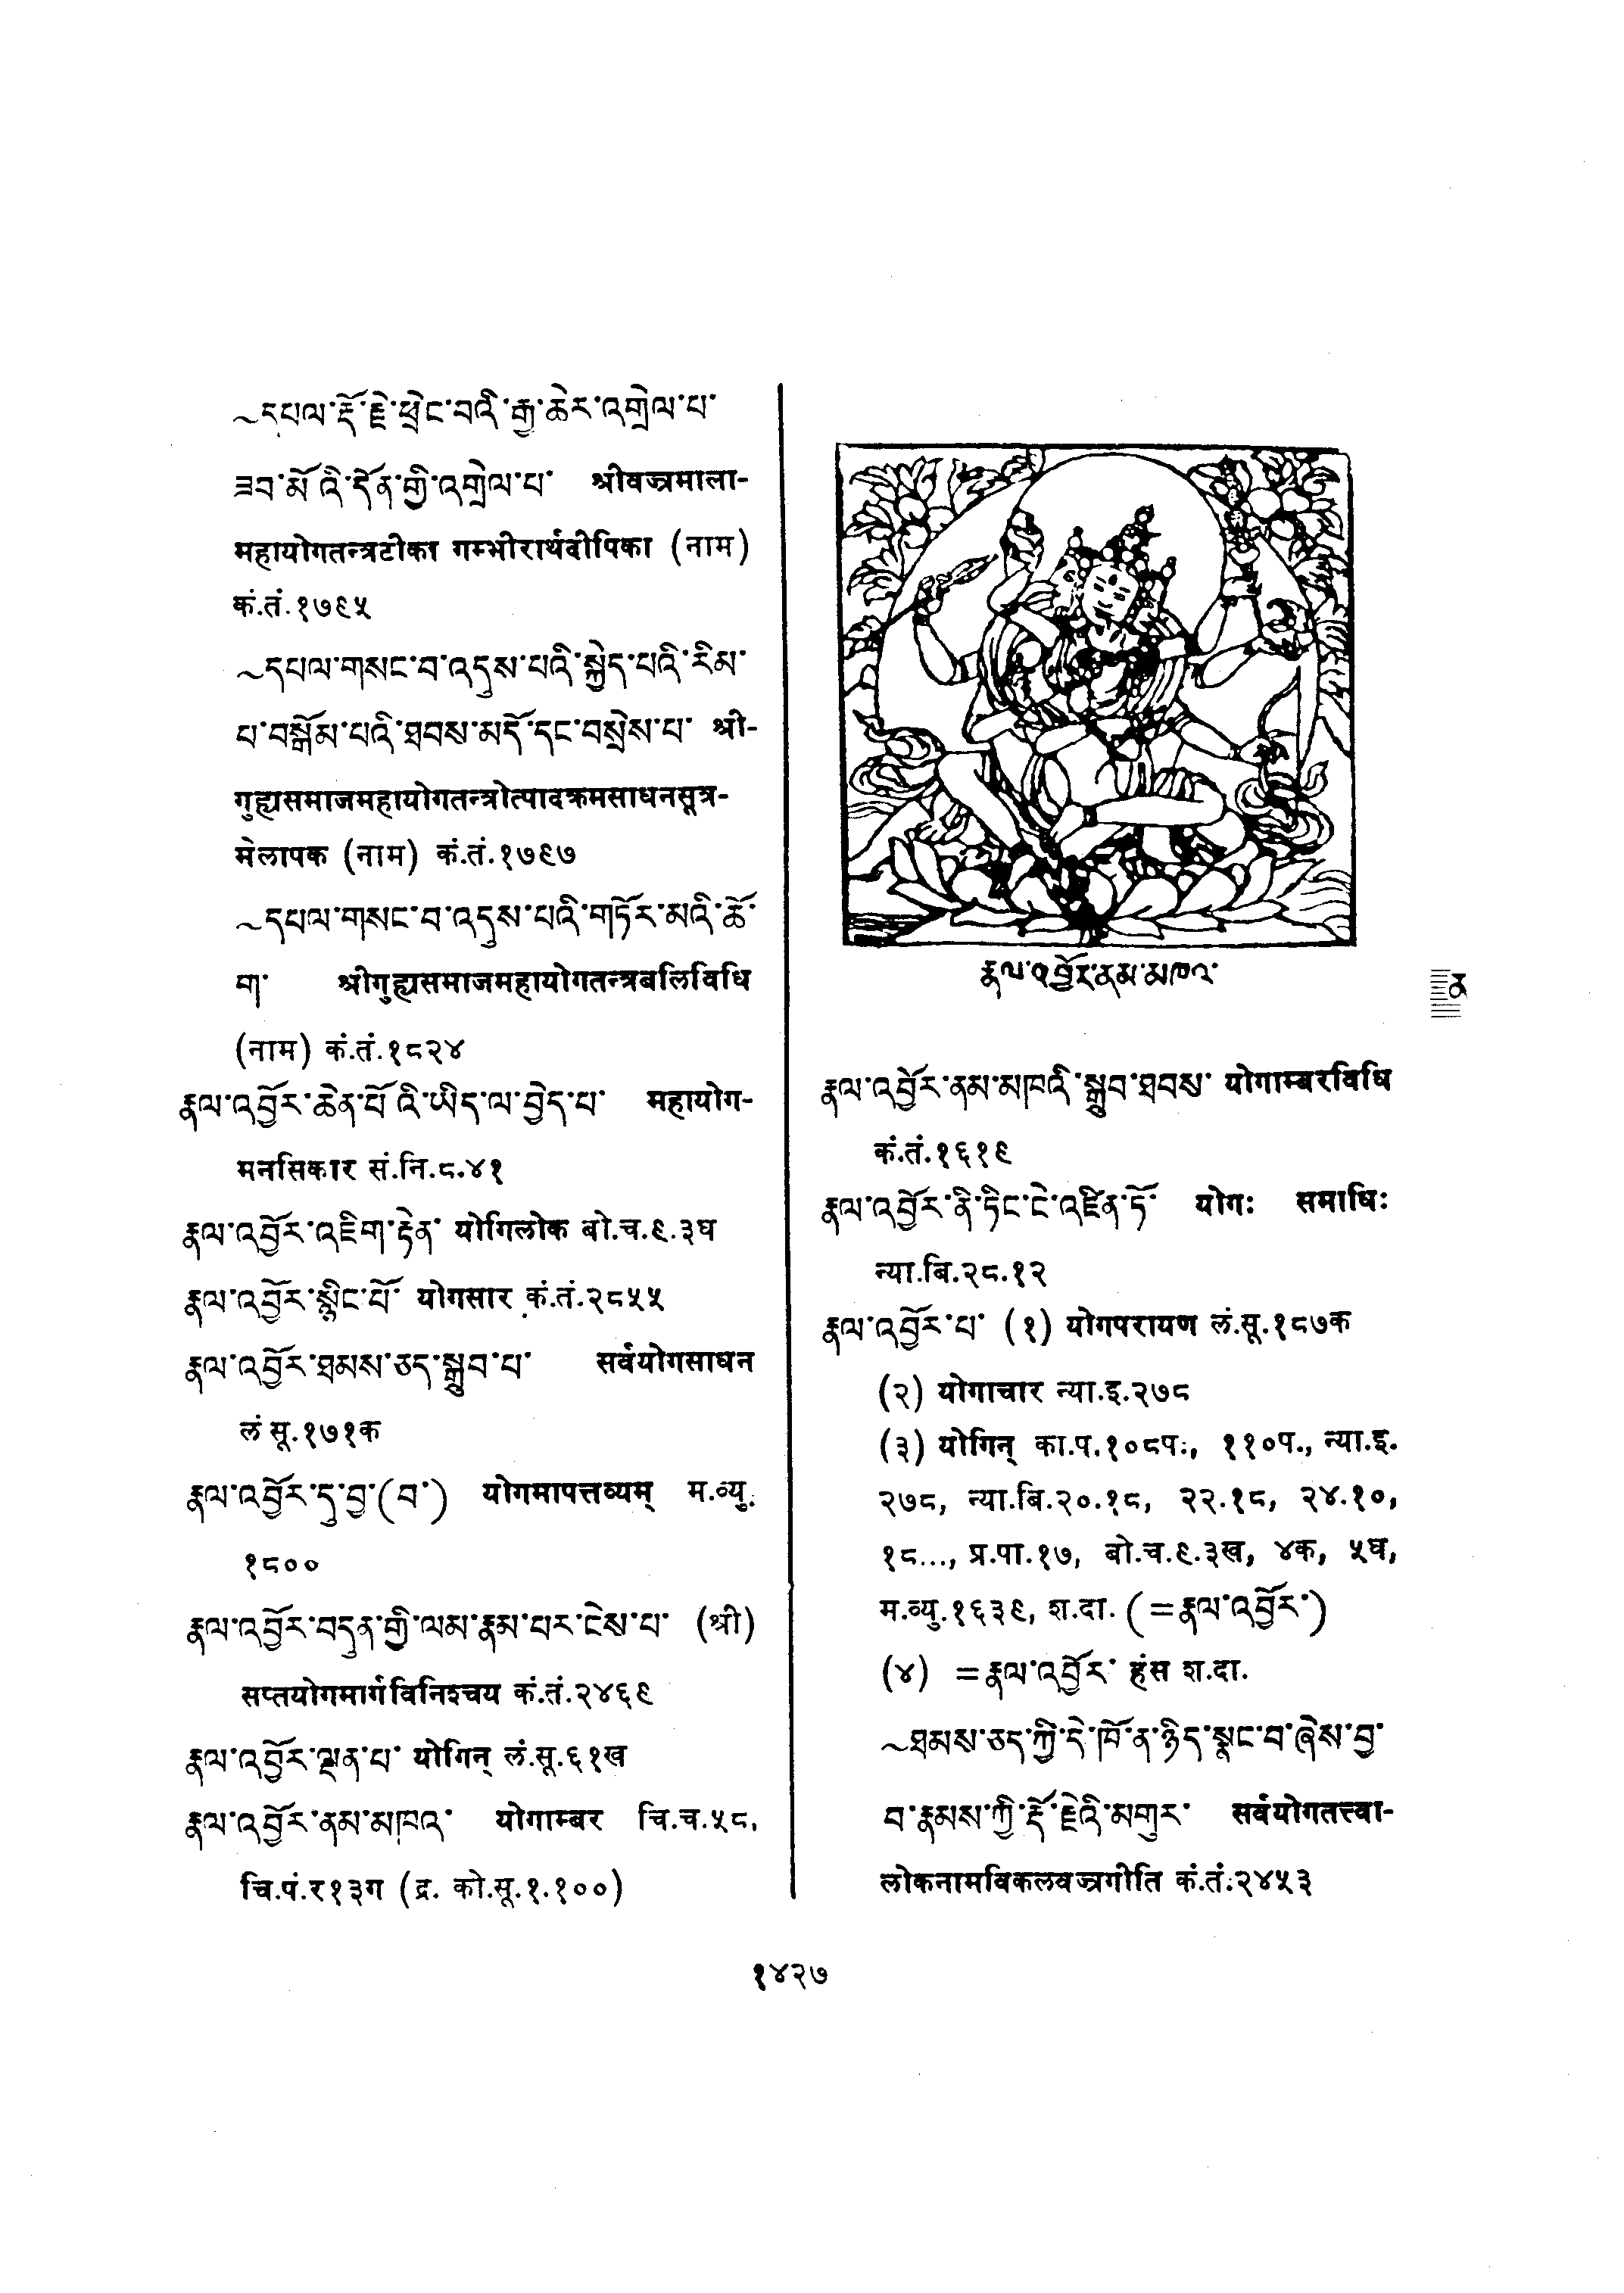 ~དཔལ་རྡོ་རྗེ་ཕྲེང་བའི་རྒྱ་ཆེར་འགྲེལ་པ་
ཟབ་མོའི་དོན་གྱི་འགྲེལ་པ་ श्रीवज्रमाला-
महायोगतन्त्रटीका गम्भीरार्थदीपिका (नाम)
कं.तं.१७९५
~དཔལ་གསང་བ་འདུས་པའི་སྐྱེད་པའི་རིམ་
པ་བསྒོམ་པའི་ཐབས་མདོ་དང་བསྲེས་པ་ श्री-
गुह्यसमाजमहायोगतन्त्रोत्पादक्रमसाधनसूत्र-
मेलापक (नाम) कं.तं.१७९७
~དཔལ་གསང་བ་འདུས་པའི་གཏོར་མའི་ཆོ་
ག་ श्रीगुह्यसमाजमहायोगतन्त्रबलिविधि
(नाम) कं.तं.१८२४
རྣལ་འབྱོར་ཆེན་པོའི་ཡིད་ལ་བྱེད་པ་ महायोग-
मनसिकार सं.नि.८.४१
རྣལ་འབྱོར་འཇིག་རྟེན་ योगिलोक बो.च.९.३घ
རྣལ་འབྱོར་སྙིང་པོ་ योगसार कं.तं.२८५५
རྣལ་འབྱོར་ཐམས་ཅད་སྒྲུབ་པ་ सर्वयोगसाधन
लं सू.१७१क
རྣལ་འབྱོར་དུ་བྱ་(བ་) योगमापत्तव्यम् म.व्यु.
१८००
རྣལ་འབྱོར་བདུན་གྱི་ལམ་རྣམ་པར་ངེས་པ་ (श्री)
सप्तयोगमार्गविनिश्चय कं.तं.२४६९
རྣལ་འབྱོར་ལྡན་པ་ योगिन् लं.सू.६१ख
རྣལ་འབྱོར་ནམ་མཁའ་ योगाम्बर चि.च.५८,
चि.पं.र१३ग (द्र. को.सू.१.१००)
རྣལ་འབྱོར་ནམ་མཁའ་
ན
རྣལ་འབྱོར་ནམ་མཁའི་སྒྲུབ་ཐབས་ योगाम्बरविधि
कं.तं.१६१९
རྣལ་འབྱོར་ནི་ཏིང་ངེ་འཛིན་ཏོ་ योगः समाधिः
न्या.बि.२८.१२
རྣལ་འབྱོར་པ་ (१) योगपरायण लं.सू.१८७क
(२) योगाचार न्या.इ.२७८
(३) योगिन् का.प.१०८प., ११०प., न्या.इ.
२७८, न्या.बि.२०.१८, २२.१८, २४.१०,
१८..., प्र.पा.१७, बो.च.९.३ख, ४क, ५घ,
म.व्यु.१६३९, श.दा. (=རྣལ་འབྱོར་)
(४) =རྣལ་འབྱོར་ हंस श.दा.
~ཐམས་ཅད་ཀྱི་དེ་ཁོ་ན་ཉིད་སྣང་བ་ཞེས་བྱ་
བ་རྣམས་ཀྱི་རྡོ་རྗེའི་མགུར་ सर्वयोगतत्त्वा-
लोकनामविकलवज्रगीति कं.तं.२४५३
१४२७